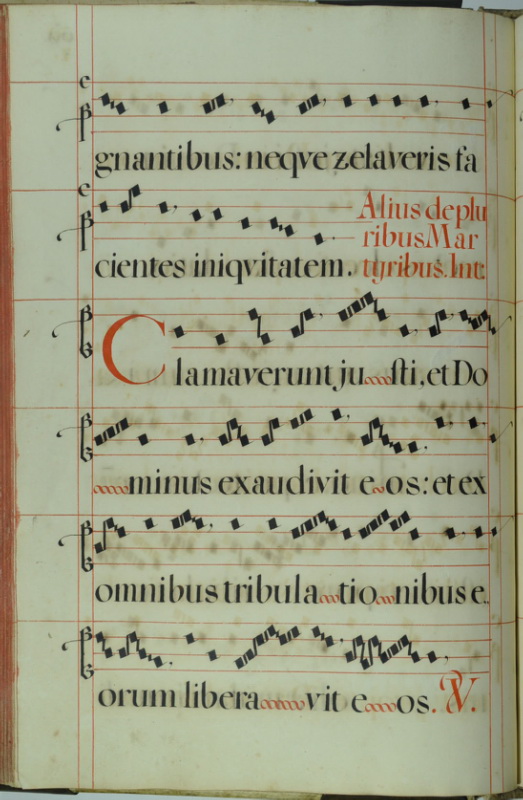 gnantibus: neqve zelaveris fa
cientes iniqvitatem.
Alius de plu
ribus Mar
tyribus. Int:
Clamaverunt ju sti, et Do
minus exaudivit e os: et ex
omnibus tribula tio nibus e
orum libera vit e os. V.